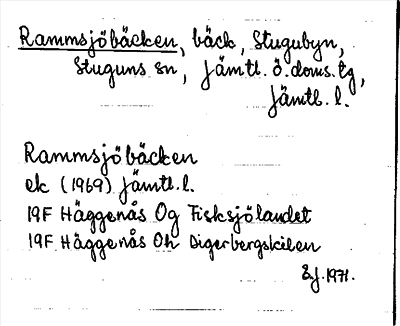 Rammsjöbäcken, bäck, Stugubyn,
Stuguns sn, Jämtl. ö. doms. tg,
Jämtl. l.
Rammsjöbäcken
ek (1969) Jämtl. l.
19F Häggenås Og Fisksjölandet
19F Häggenås Oh Digerbergskilen
E.J. 1971.